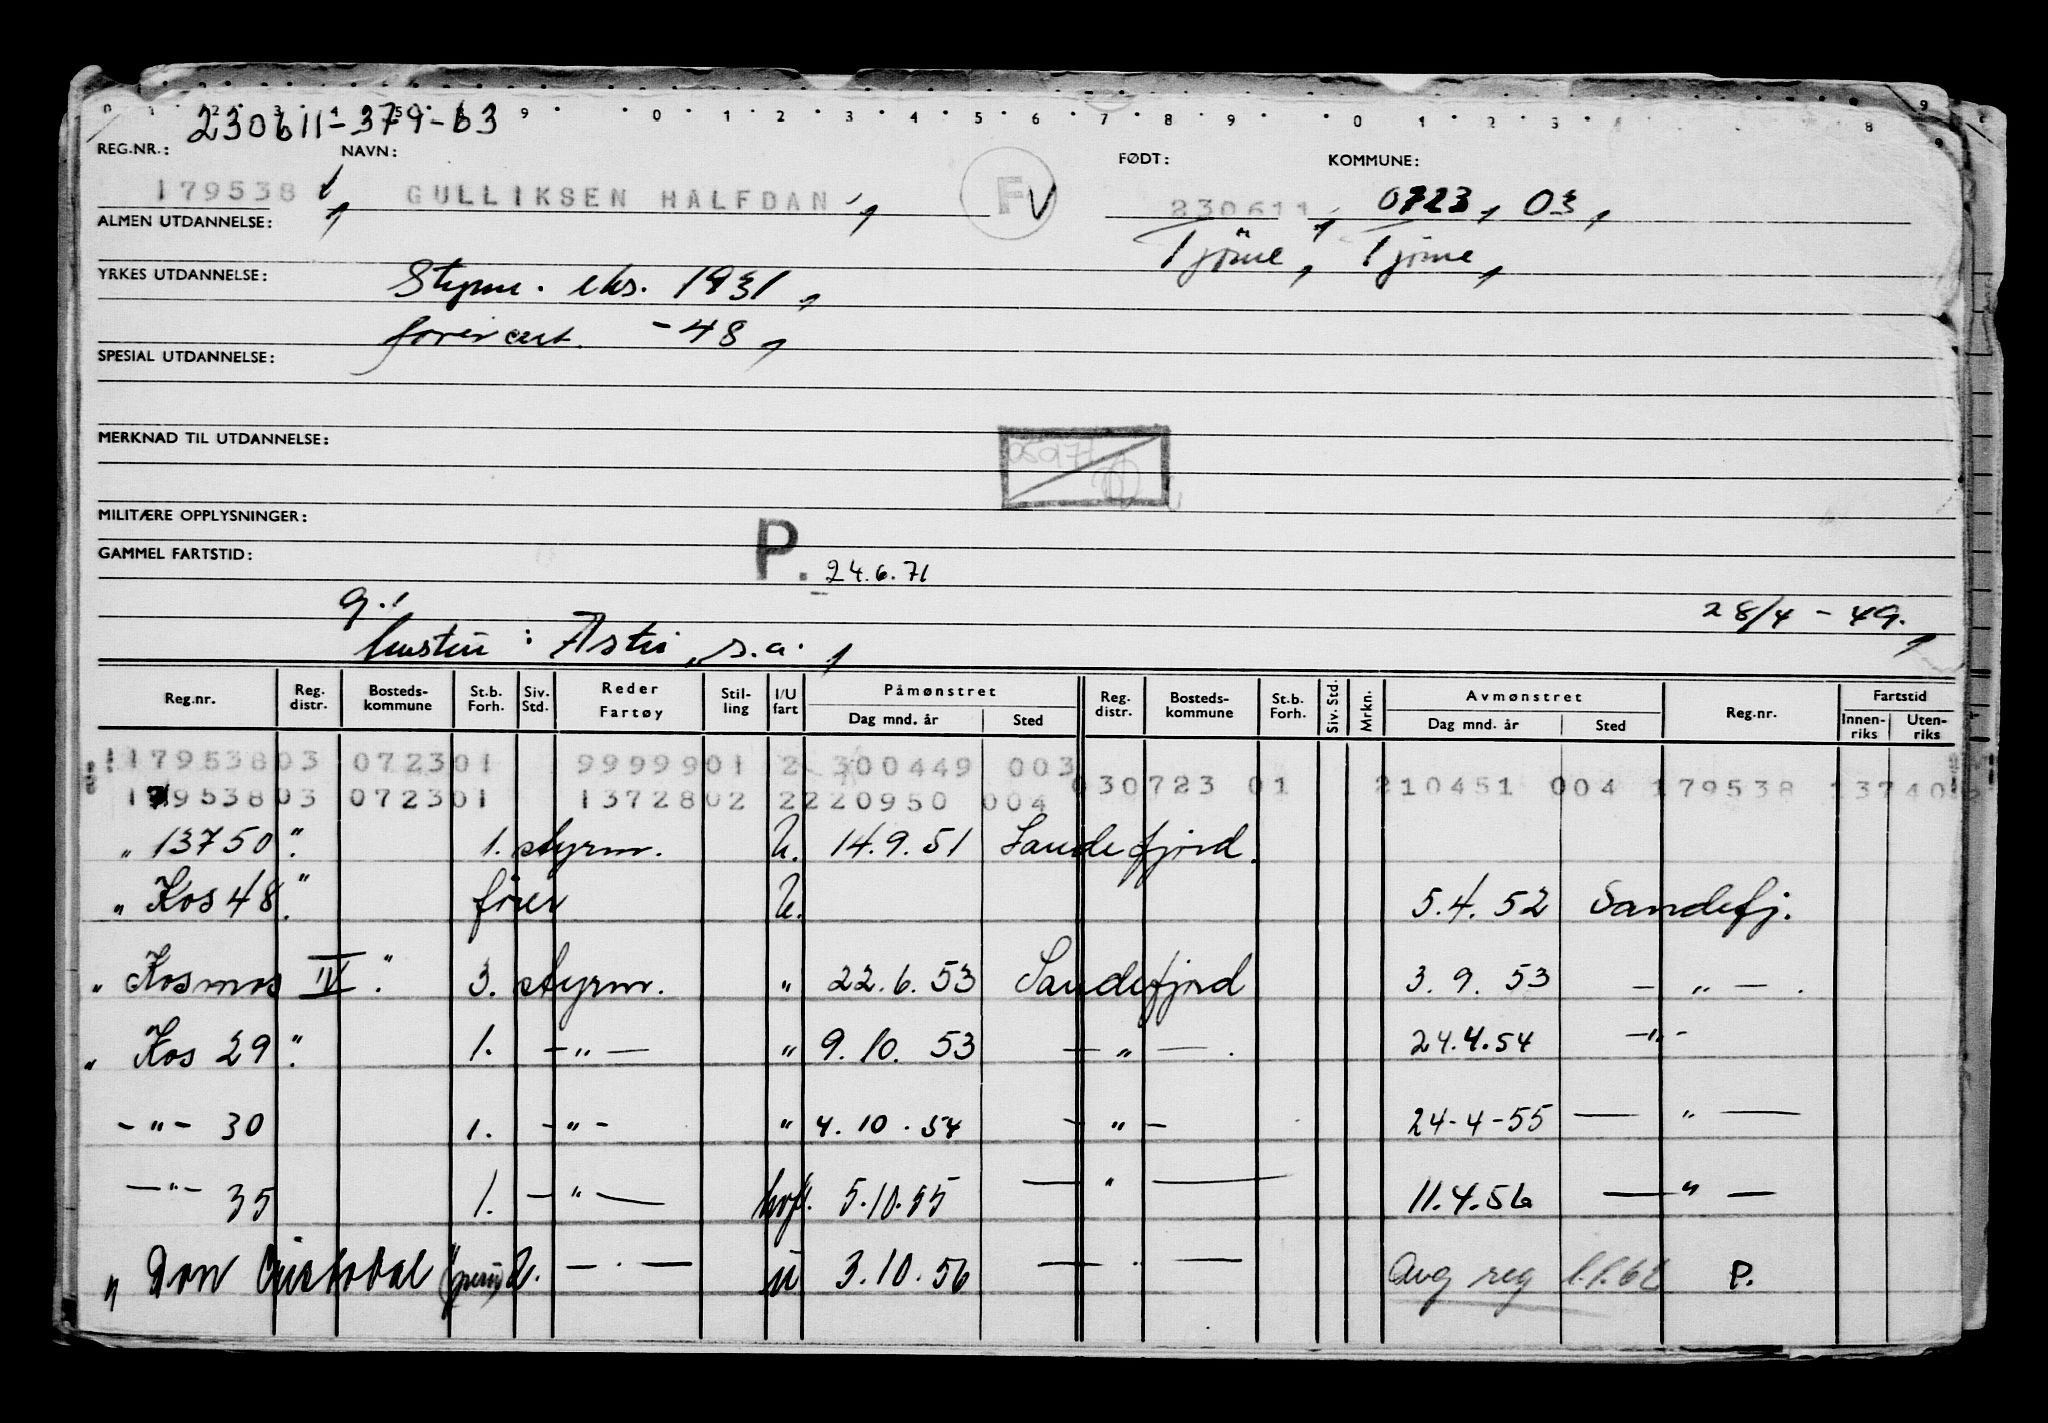 230611-379-63
REG.NR.: NAVN: FØDT: KOMMUNE:
179538 GULLIKSEN HALFDAN F V 230611, 0723, 03,
ALMEN UTDANNELSE: Tjöme, Tjöme,
YRKES UTDANNELSE: Styrm. eks. 1931,
förercert. -48,
SPESIAL UTDANNELSE:
MERKNAD TIL UTDANNELSE:
MILITÆRE OPPLYSNINGER:
GAMMEL FARTSTID: P. 24.6.71
g.!
hustru: s.a., 28/4-49.,
Reg.nr. Reg. distr. Bosteds-kommune St.b. Forh. Siv. Std. Reder Fartøy Stil-ling I/U fart Påmønstret Dag mnd. år Sted Reg. distr. Bosteds-kommune St.b. Forh. Siv. Std. Mrkn. Avmønstret Dag mnd. år Sted Reg.nr. Fartstid Innen-riks Uten-riks
17953803 072301 9999901 2 300449 003
17953803 072301 1372802 2220950 004 030723 01 210451 004 179538 13740
" 13750 " 1. styrm. U. 14.9.51 Sandefjord.
" Kos 48 " förer U. 5.4.52 Sandefj.
" Kosmos IV " 3. styrm. " 22.6.53 Sandefjord 3.9.53 - " - .
" Kos 29 " 1. - " - " 9.10.53 - " - . 24.4.54 - " -
- " - 30 1. - " - " 4.10.54 - " - 24-4-55 - " -
- " - 35 1. - " - hvf. 5.10.55 - " - 11.4.56 - " -
" Don 2. - . - u 3.10.56 - . - Avg reg 1.1.62 P.